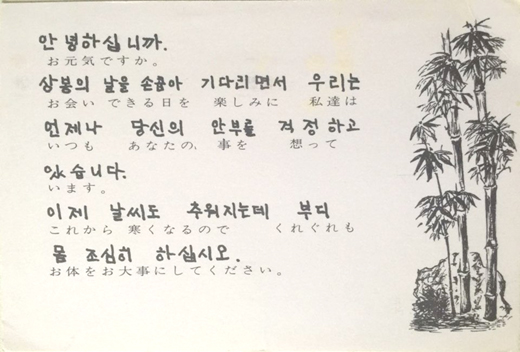 안녕하십니까.
お元気ですか。
상봉의 날을 손곱아 기다리면서 우리는
お会い できる日を 楽しみに 私達は
언제나 당신의 안부를 걱정하고
いつも あなたの、事を 想って
있습니다.
います。
이제 날씨도 추워지는데 부디
これから 寒くなるので くれぐれも
몸 조심히 하십시오.
お体をお大事にしてください。